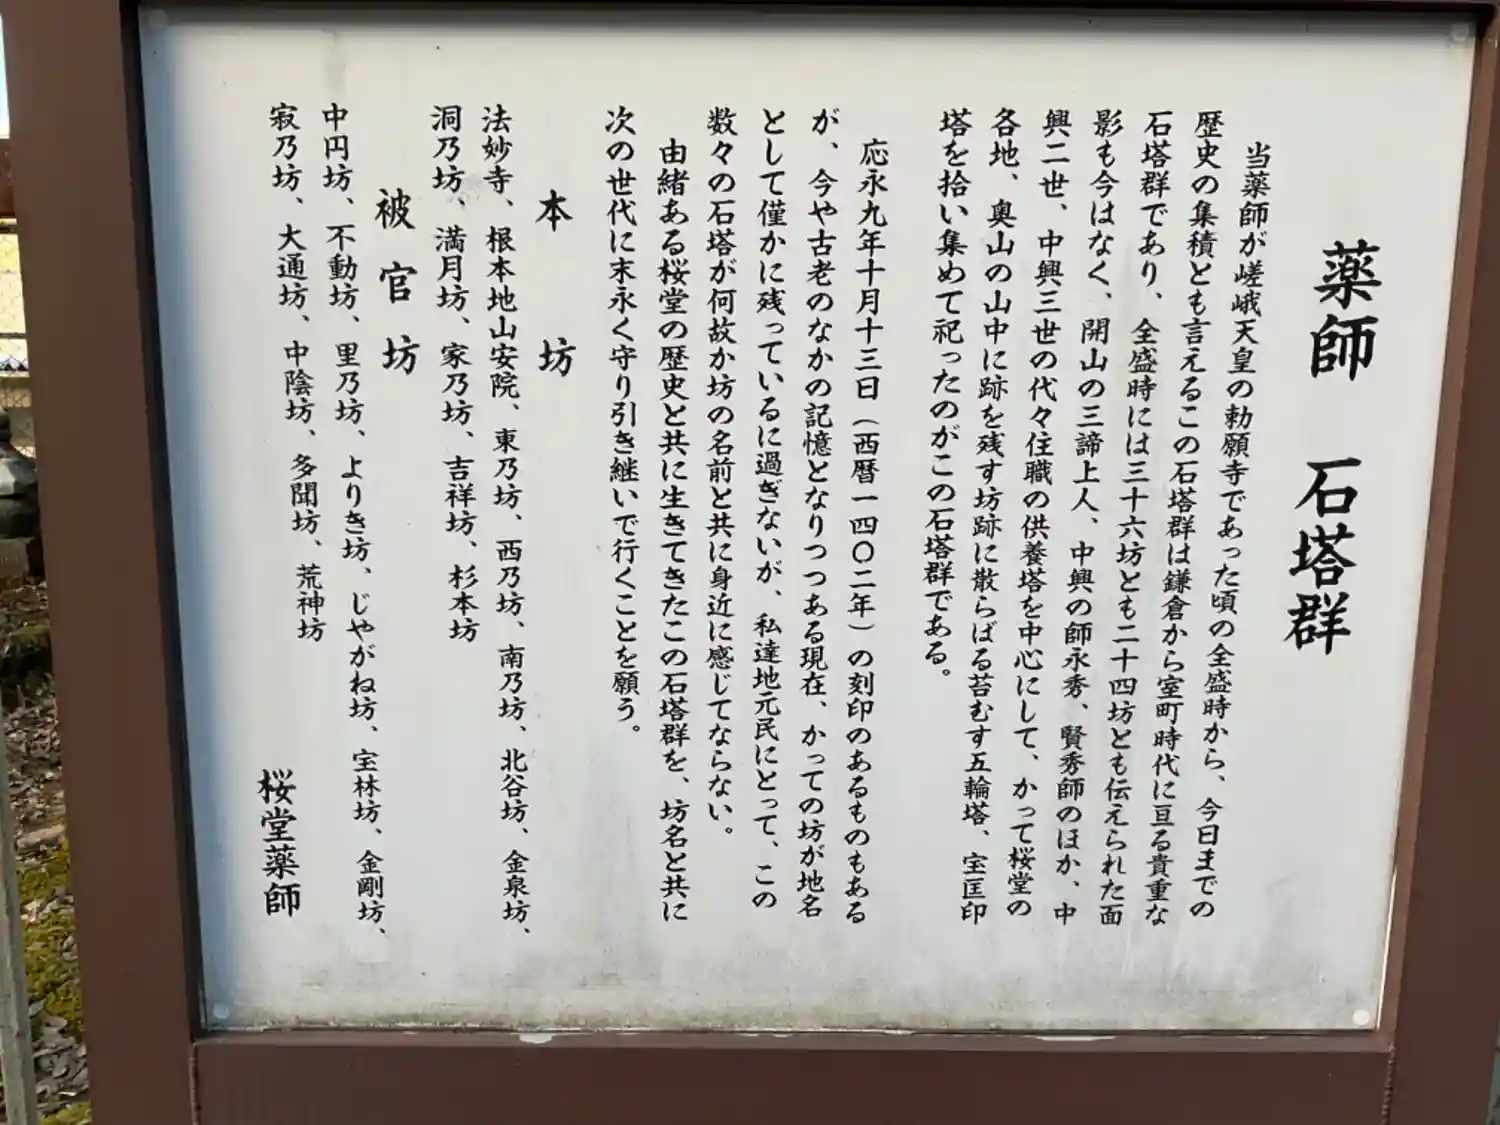 薬師　石塔群
当薬師が嵯峨天皇の勅願寺であった頃の全盛時から、今日までの
歴史の集積とも言えるこの石塔群は鎌倉から室町時代に亘る貴重な
石塔群であり、全盛時には三十六坊とも二十四坊とも伝えられた面
影も今はなく、開山の三諦上人、中興の師永秀、賢秀師のほか、中
興二世、中興三世の代々住職の供養塔を中心にして、かって桜堂の
各地、奥山の山中に跡を残す坊跡に散らばる苔むす五輪塔、宝匡印
塔を拾い集めて祀ったのがこの石塔群である。
応永九年十月十三日（西暦一四〇二年）の刻印のあるものもある
が、今や古老のなかの記憶となりつつある現在、かっての坊が地名
として僅かに残っているに過ぎないが、私達地元民にとって、この
数々の石塔が何故か坊の名前と共に身近に感じてならない。
由緒ある桜堂の歴史と共に生きてきたこの石塔群を、坊名と共に
次の世代に末永く守り引き継いで行くことを願う。
本　坊
法妙寺、根本地山安院、東乃坊、西乃坊、南乃坊、北谷坊、金泉坊、
洞乃坊、満月坊、家乃坊、吉祥坊、杉本坊
被官坊
中円坊、不動坊、里乃坊、よりき坊、じやがね坊、宝林坊、金剛坊、
寂乃坊、大通坊、中陰坊、多聞坊、荒神坊
桜堂薬師